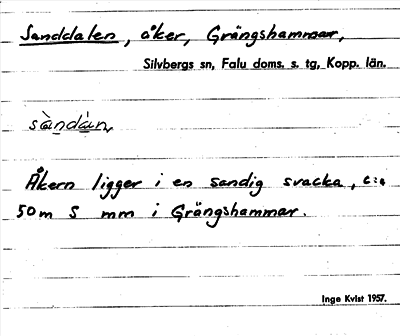 Sanddalen, åker, Grängshammar,
Silvbergs sn, Falu doms. s. tg, Kopp. län.
Åkern ligger i en sandig svacka, c:a
50 m S mm i Grängshammar.
Inge Kvist 1957.